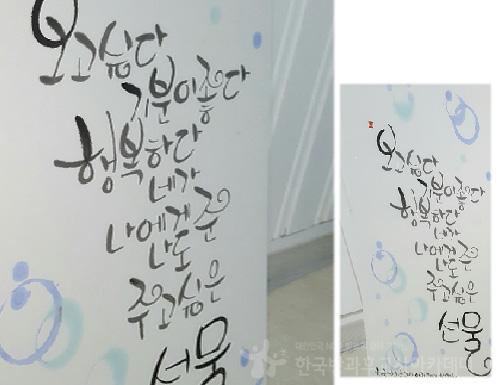 보고싶다
기분이좋다
행복하다
네가
나에게 준
나도
주고싶은
선물
보고싶다
기분이좋다
행복하다
네가
나에게 준
나도
주고싶은
선물
한국방과후교육아카데미